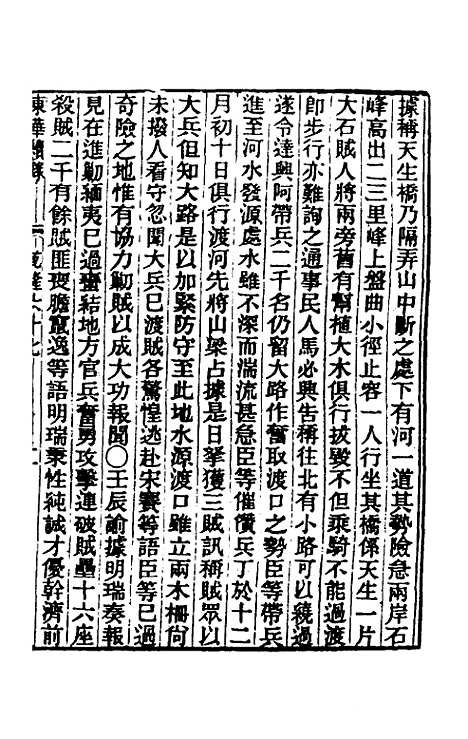 據稱天生橋乃隔弄山中斷之處下有河一道其勢險急兩岸石
峰高出二三里峰上盤曲小徑止容一人行坐其橋係天生一片
大石賊人將兩旁舊有幫植大木俱行拔毀不但乘騎不能過渡
卽步行亦難詢之通事民人馬必興告稱往北有小路可以繞過
遂令達興阿帶兵二千名仍留大路作奮取渡口之勢臣等帶兵
進至河水發源處水雖不深而湍流甚急臣等催儧兵丁於十二
月初十日俱行渡河先將山梁占據是日拏獲三賊訊稱賊眾以
大兵但知大路是以加緊防守至此地水源渡口雖立兩木柵尙
未撥人看守忽聞大兵已渡賊各驚惶逃赴宋賽等語臣等已過
奇險之地惟有協力勦賊以成大功報聞〇壬辰諭據明瑞奏報
見在進勦緬夷已過蠻結地方官兵奮勇攻擊連破賊壘十六座
殺賊二千有餘賊匪喪膽竄逸等語明瑞秉性純誠才優幹濟前
東華續錄 乾隆六十七